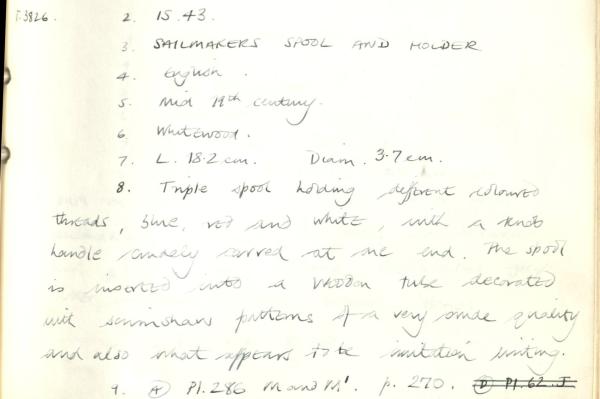 T.3826. 2. IS.43.
3. SAILMAKERS SPOOL AND HOLDER
4. English.
5. Mid 19th century.
6. Whitewood.
7. L. 18.2 cm. Diam. 3.7 cm.
8. Triple spool holding different coloured
threads, blue, red and white, with a knob
handle crudely carved at one end. The spool
is inserted into a wooden tube decorated
with scrimshaw patterns of a very crude quality
and also what appears to be imitation writing.
9. (A) Pl. 286 M and M'. p. 270. (D) Pl. 62. J